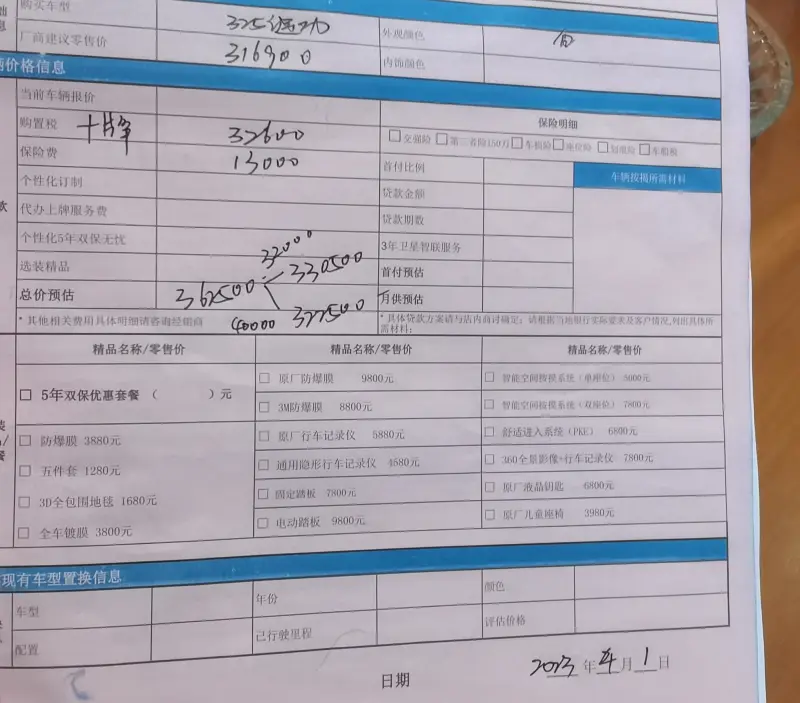 购买车型 325 运动 外观颜色 白
厂商建议零售价 316900 内饰颜色
价格信息
当前车辆报价
购置税 32600
保险费 13000
保险明细
□交强险 □第三者险150万 □车损险 □座位险 □划痕险 □车船税
个性化订制
首付比例
车辆按揭所需材料
代办上牌服务费
贷款金额
个性化5年双保无忧
贷款期数
选装精品
3年卫星智联服务
32000
330500
首付预估
总价预估 362500
月供预估
40000 322500
* 其他相关费用具体明细请咨询经销商
* 具体贷款方案请与店内商讨确定；请根据当地银行实际要求及客户情况,列出具体所需材料；
精品名称/零售价 精品名称/零售价 精品名称/零售价
□ 5年双保优惠套餐 （ ）元
□ 原厂防爆膜 9800元
□ 智能空间按摸系统（单座位）5000元
□ 3M防爆膜 8800元
□ 智能空间按摸系统（双座位）7800元
□ 防爆膜 3880元
□ 原厂行车记录仪 5880元
□ 舒适进入系统（PKE） 6800元
□ 五件套 1280元
□ 通用隐形行车记录仪 4580元
□ 360全景影像+行车记录仪 7800元
□ 3D全包围地毯 1680元
□ 固定踏板 7800元
□ 原厂液晶钥匙 6800元
□ 全车镀膜 3800元
□ 电动踏板 9800元
□ 原厂儿童座椅 3980元
现有车型置换信息
车型 年份 颜色
配置 已行驶里程 评估价格
日期 2023 年 4 月 1 日